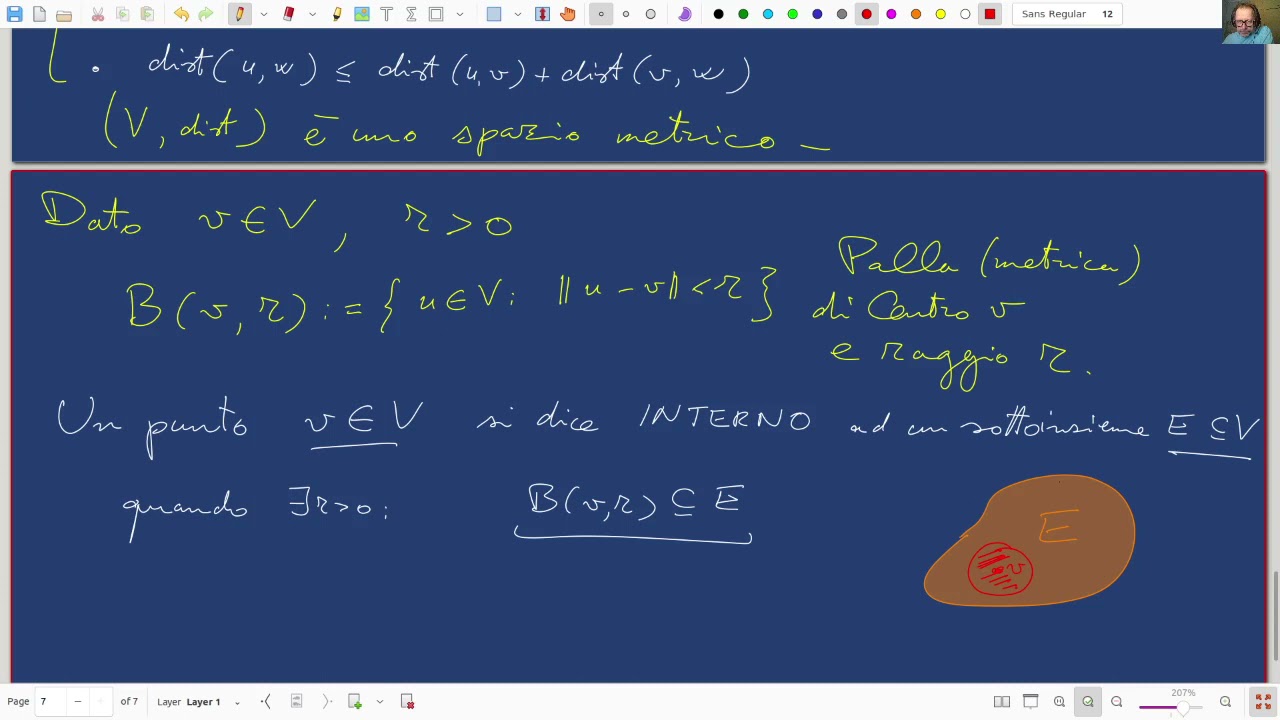 Sans Regular 12
• dist(u,w) ≤ dist(u,v) + dist(v,w)
(V, dist) è uno spazio metrico
Dato v ∈ V, r > 0
B(v,r) := { u ∈ V : ‖u - v‖ < r }
Palla (metrica)
di Centro v
e raggio r.
Un punto v ∈ V si dice INTERNO ad un sottoinsieme E ⊆ V
quando ∃ r>0 : B(v,r) ⊆ E
E
v
Page 7 of 7 Layer Layer 1 207%